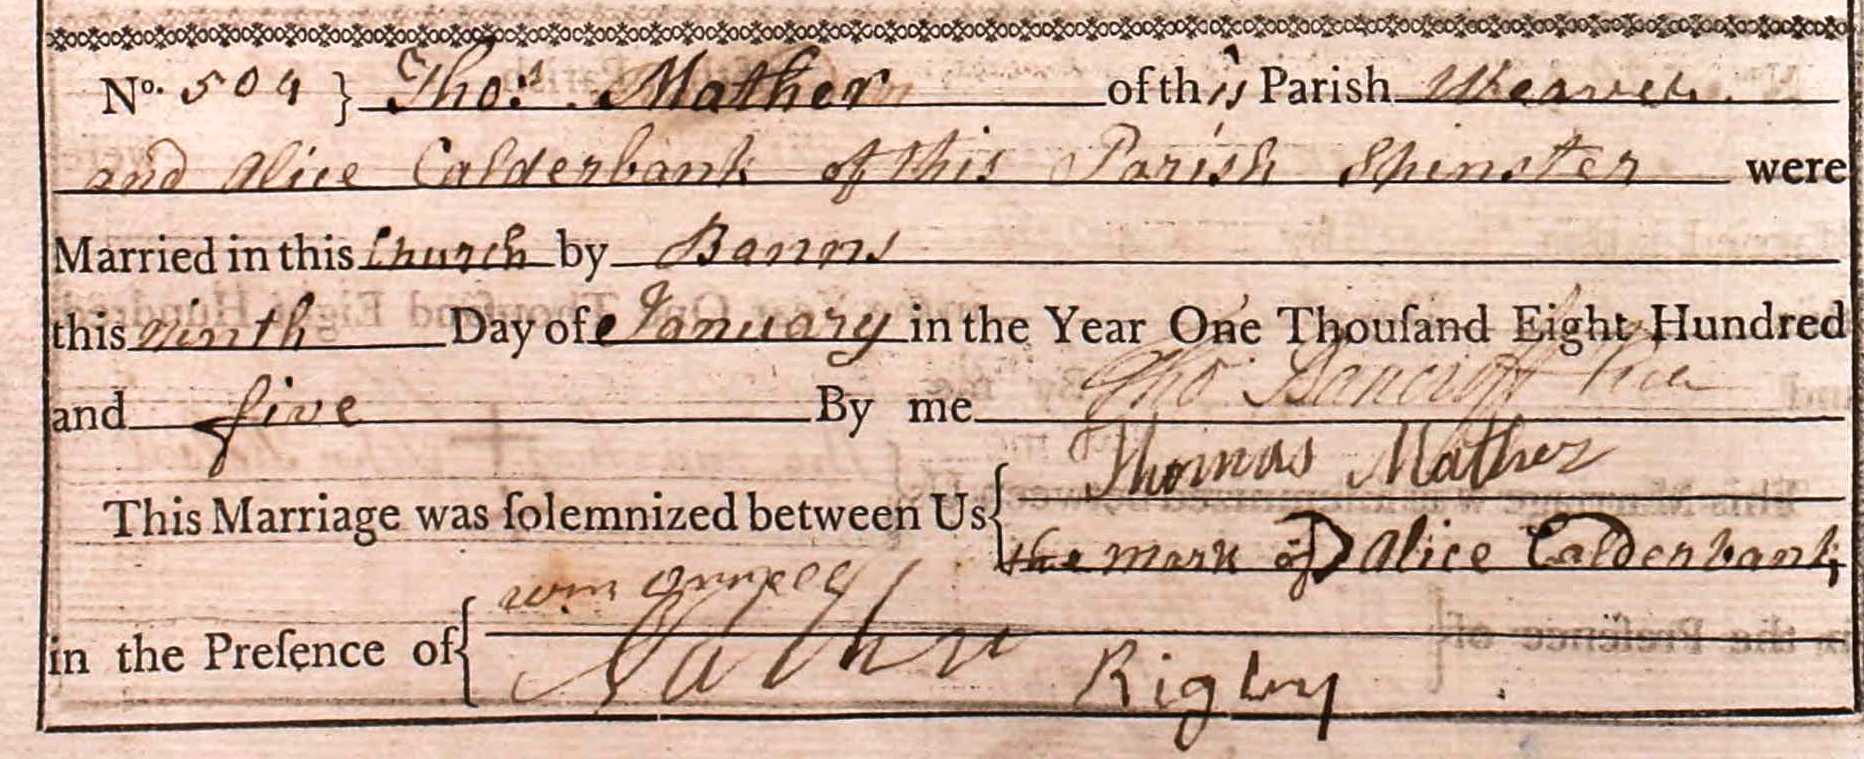 No. 504 } Thos. Mather of this Parish Weaver
and Alice Calderbank of this Parish Spinster were
Married in this Church by Banns
this ninth Day of January in the Year One Thouſand Eight Hundred
and five By me Tho Bancroft Vicar
This Marriage was ſolemnized between Us { Thomas Mather
the mark of Alice Calderbank
in the Preſence of { Wm
Rigby